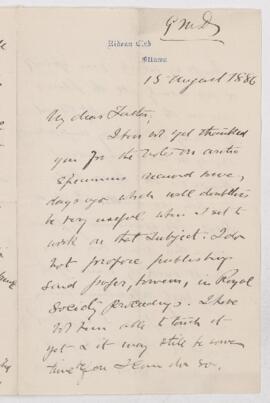 GMD
Rideau Club
Ottawa
15 August 1886
My dear Father,
I have not yet thanked
you for the notes on arctic
specimens received some
days ago which will doubtless
be very useful when I get to
work on that subject. I do
not propose publishing
said paper, however, in Royal
Society proceedings. I have
not been able to touch it
yet & it may still be some
time before I can do so.